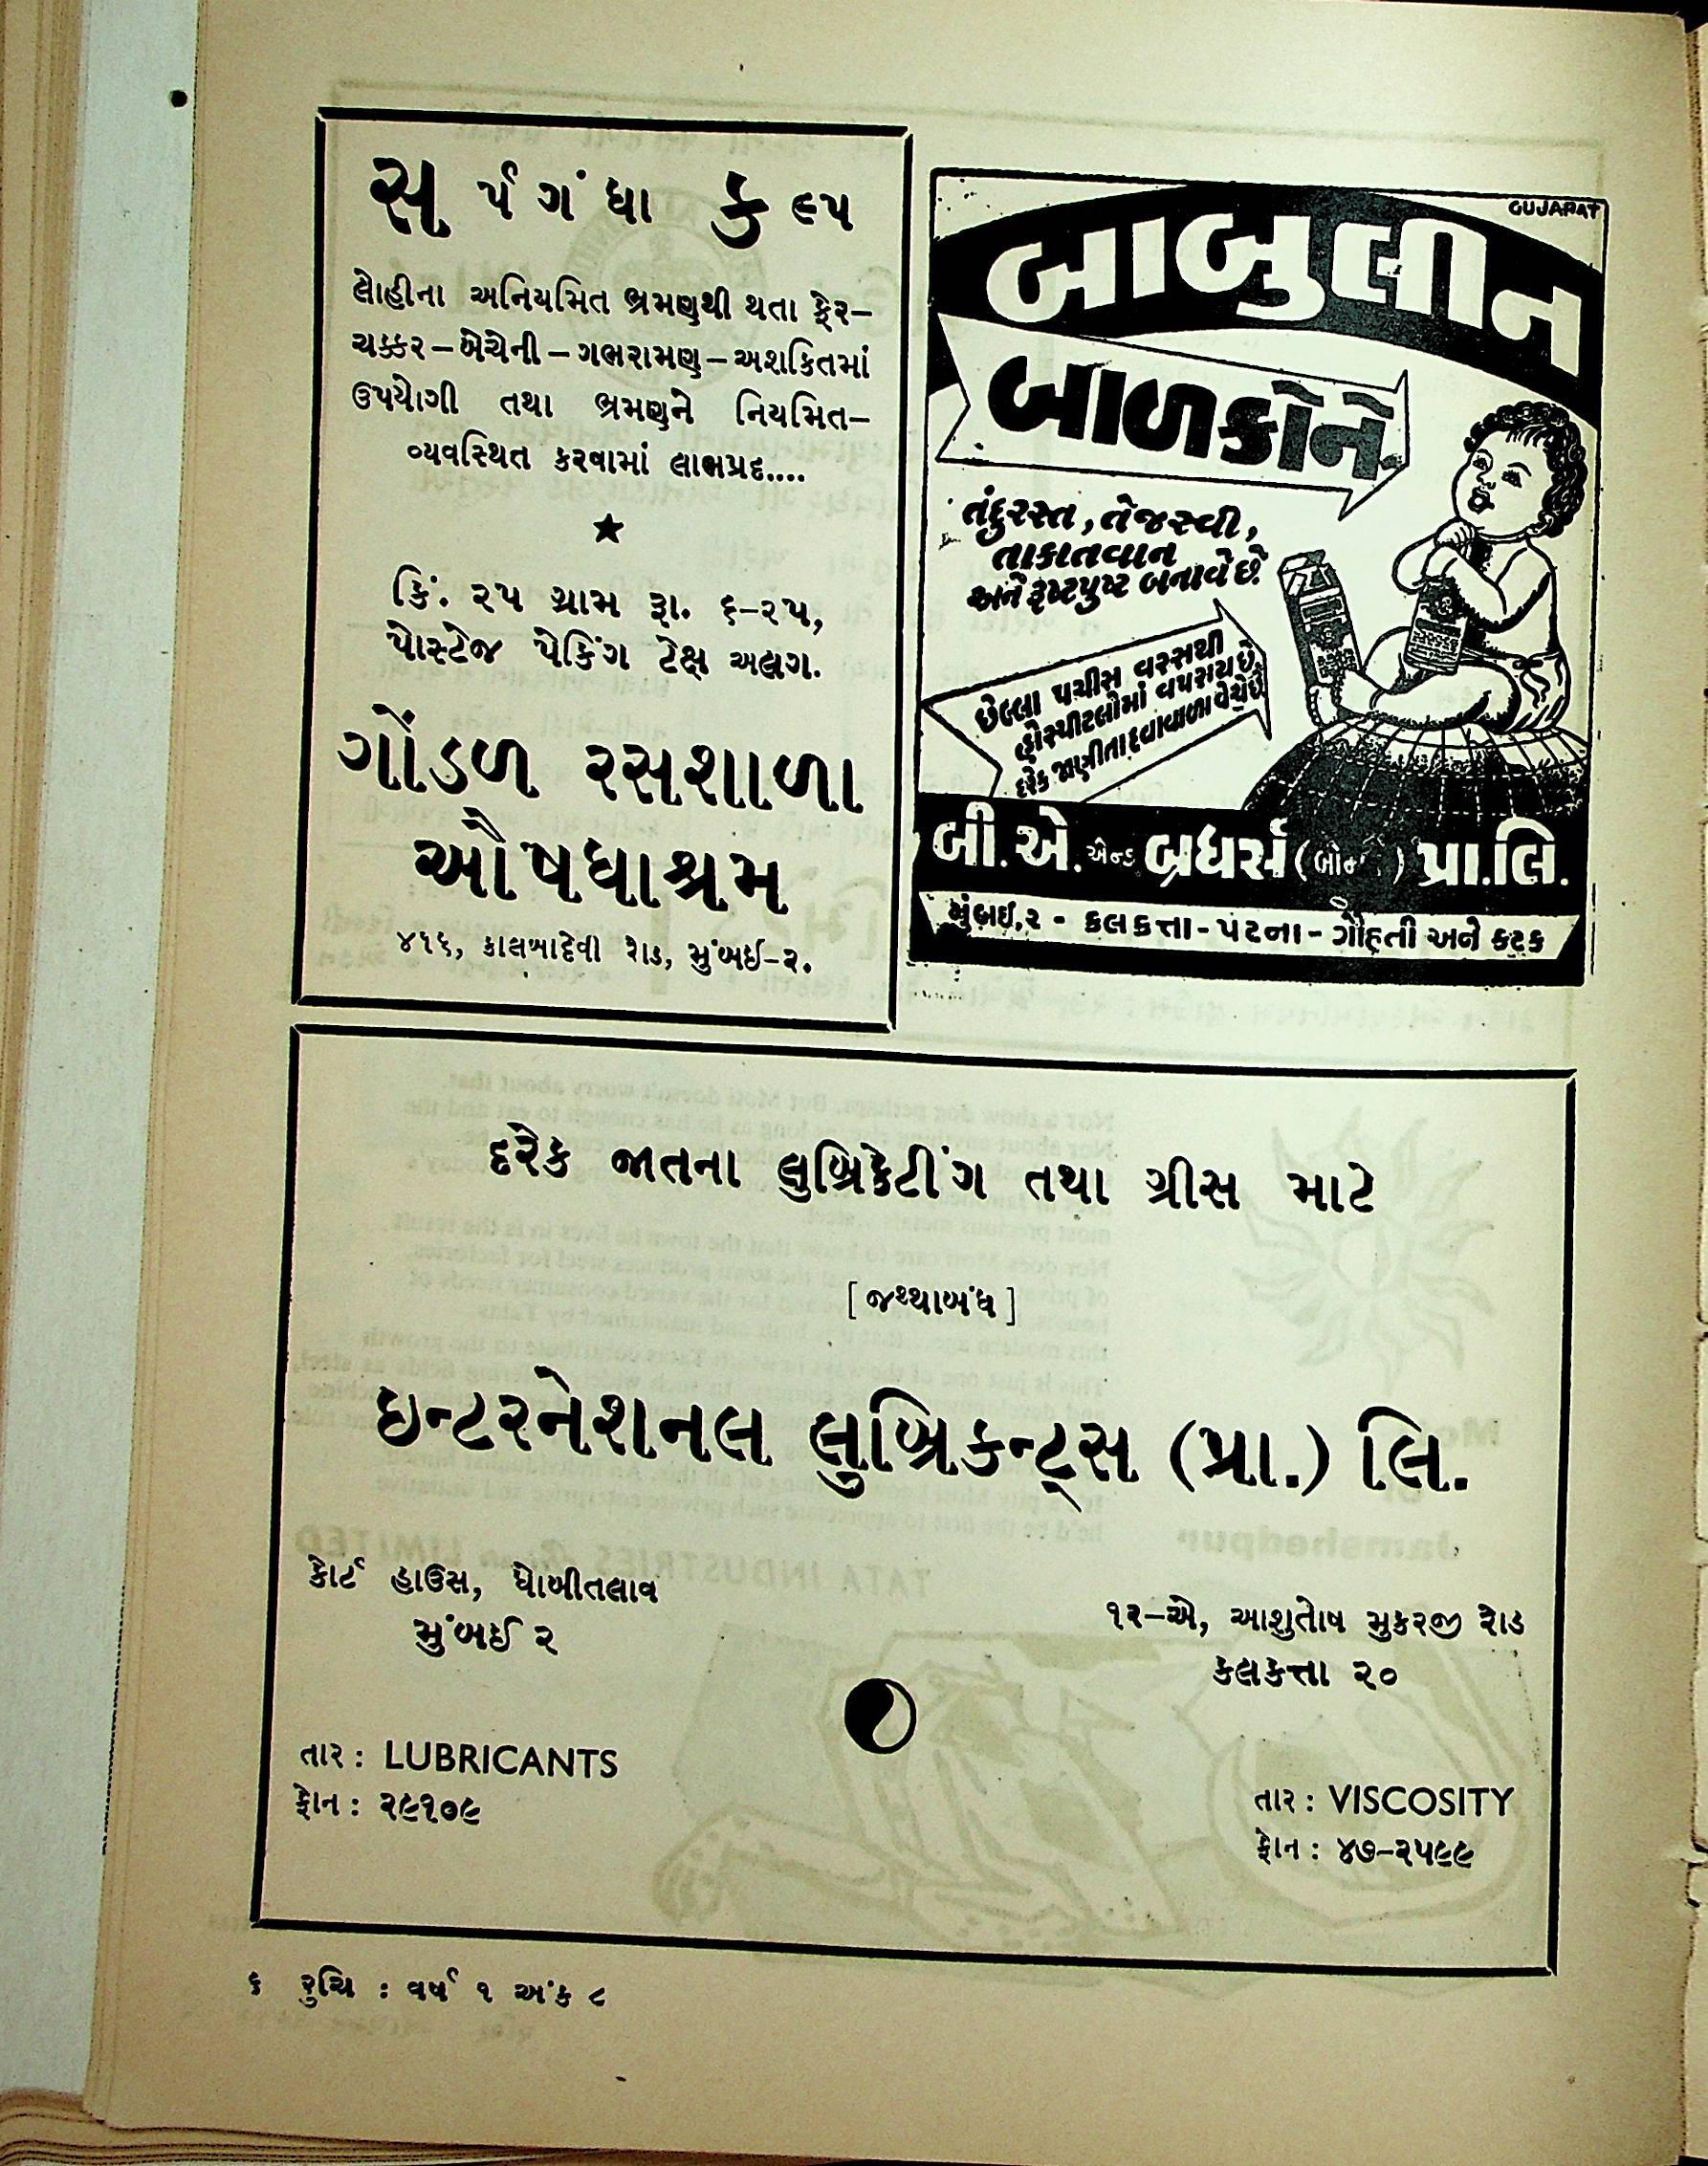 સર્પગંધા કલ્પ
લોહીના અનિયમિત ભ્રમણથી થતા ફેર–
ચક્કર – બેચેની – ગભરામણ – અશકિતમાં
ઉપયોગી તથા ભ્રમણને નિયમિત–
વ્યવસ્થિત કરવામાં લાભપ્રદ....
★
કિં. ૨૫ ગ્રામ રૂા. ૬–૨૫,
પોસ્ટેજ પેકિંગ ટેક્ષ અલગ.
ગોંડળ રસશાળા
ઔષધાશ્રમ
૪૧૬, કાલબાદેવી રોડ, મુંબઈ–૨.
GUJARAT
બાબુલીન
બાળકોને
તંદુરસ્ત, તેજસ્વી,
તાકાતવાન
અને હૃષ્ટપુષ્ટ બનાવે છે.
છેલ્લા પચીસ વરસથી
હોસ્પીટલોમાં વપરાય છે.
દરેક જાણીતા દવાવાળા વેચે છે
બી. એ. એન્ડ બ્રધર્સ ( ) પ્રા. લિ.
મુંબઇ, ૨ - કલકત્તા - પટના - ગૌહતી અને કટક
દરેક જાતના લુબ્રિકેટીંગ તથા ગ્રીસ માટે
[ જથ્થાબંધ ]
ઇન્ટરનેશનલ લુબ્રિકન્ટ્સ (પ્રા.) લિ.
કોર્ટ હાઉસ, ધોબીતલાવ
મુંબઈ ૨
તાર : LUBRICANTS
ફોન : ૨૯૧૦૯
૧૨–એ, આશુતોષ મુકરજી રોડ
કલકત્તા ૨૦
તાર : VISCOSITY
ફોન : ૪૭–૨૫૯૯
૬ રુચિ : વર્ષ ૧ અંક ૮